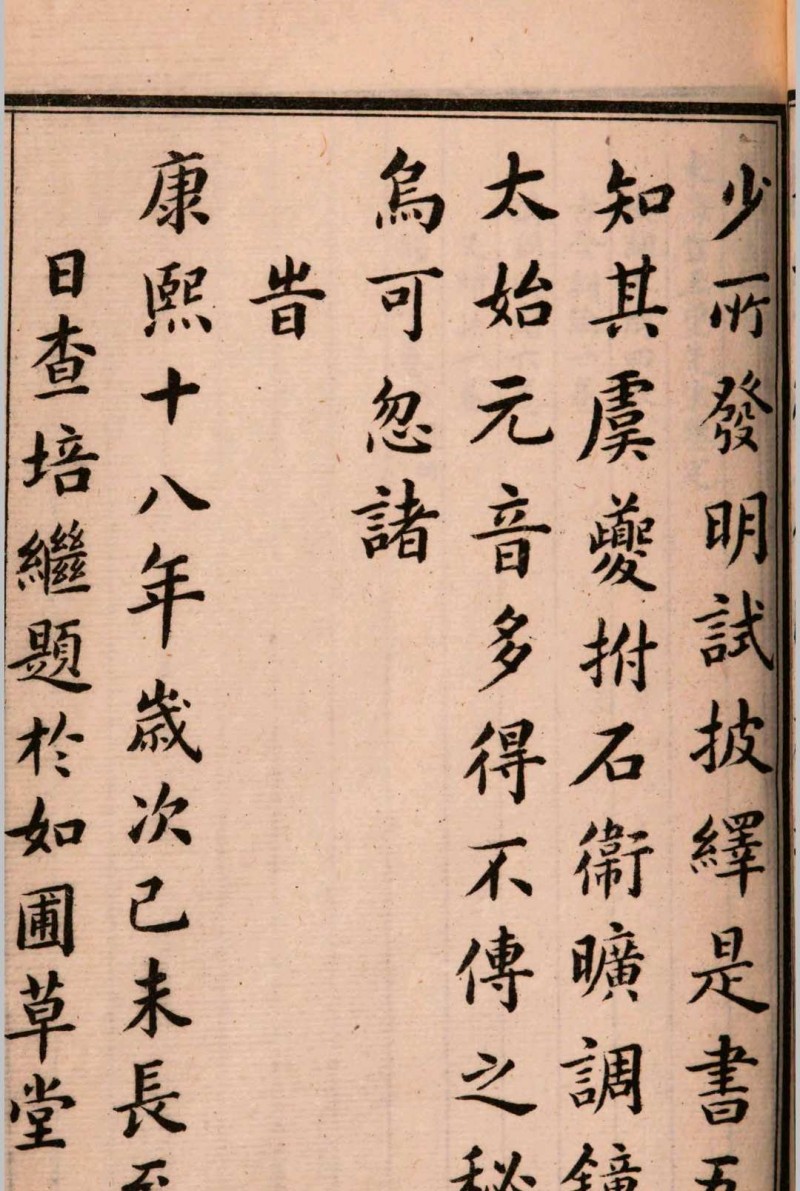 少所發明試披繹是書五
知其虞夔拊石衞曠調鐘
太始元音多得不傳之秘
烏可忽諸
旹
康熙十八年歲次己未長至
日查培繼題於如圃草堂